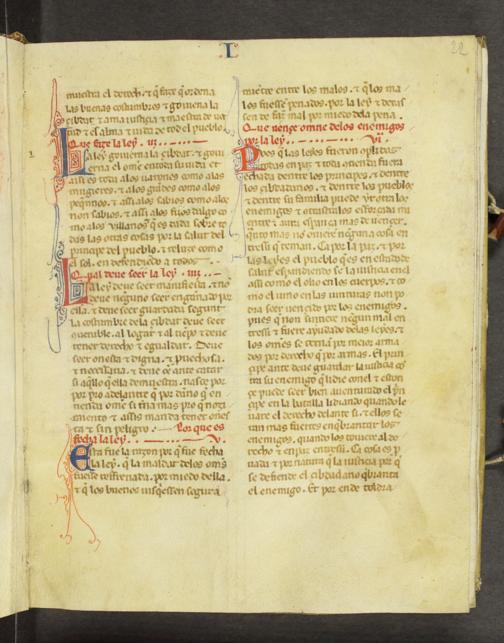 L
22
muestra el derecho. & que faze que ordena
las buenas costumbres & govierna la
cibdat. & ama iusticia & maestra de ver
tud & el alma & vida de tod el pueblo.
Que faze la ley. iii.
La ley govierna la cibdat. & govi
erna el omne en toda su vida. et
assi es toda alos varones como alas
mugieres. & alos grandes como alos
pequennos. & assi alos sabios como alos
non sabios. & assi alos fijos dalgo co
mo alos villanos. que es dada sobre to
das las otras cosas por la salut del
principe del pueblo. & reluce como
el sol. en defendiendo a todos.
Qual deve seer la ley. iiii.
La ley deve seer manifiesta. & no
deve neguno seer engannado por
ella. & deve seer guardada segunt
la costumbre de la cibdat. deve seer
convenible. al logar & al tiempo & deve
tener derecho & egualdat. Deve
seer onesta & digna. & provechosa.
& necessaria. & deve omne ante catar
si aquello que ella demuestra. nasce por
por pro adelante o por danno que en
tienda omne si terna mas pro que noz
imiento & assis manda tener ones
ta & sin peligro. Por que es
fecha la ley. v.
Esta fue la razon por que fue fecha
la ley. que la maldat de los omnes
fuesse refrenada. por miedo della.
& que los buenos visquiessen segura
mientre entre los malos. & que los ma
los fuessen penados. por la ley & dexas
sen de fazer mal por miedo dela pena.
Que vençe omne delos enemigos
por la ley. vi.
Pues que las leyes fueron
todas en paz & toda
echada dentre los principes. & dentre
los cibdadanos. & dentre los pueblos
& dentre su familia puede yr otra los
enemigos & otras tales esforçada mi
entre & aura esperança mas de vencer.
quito mas no oviere neguna cosa en
tressi que teman. Ca por la paz. & por
las leyes el pueblo que es en estado de
salut espandiendo se la iusticia en el
assi como el olio en los cuerpos. & co
mo el vino en las no po
dra seer vencido por los enemigos.
pues que non sintiere negun mal en
tressi & fuere ayudado delas leyes. &
los omnes se ternan por meior arma
dos por derecho que por armas. El prin
çipe ante deve guardar la iusticia co
tra su enemigo que lidie con el & eston
çe puede seer bien auenturado el prin
çipe en la batalla lidiando quando le
vare el derecho delante si. & ellos se
ran mas fuertes en quebrantar los
enemigos. quando los toviere al de
recho & en paz entressi. Ca cosa es pro
vada & por natura que la iusticia por que
se defiende el cibdadano quebranta
el enemigo. Et por ende toldra